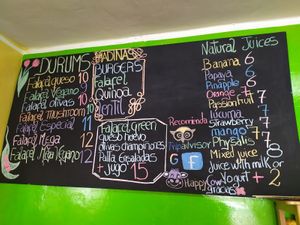 DURUMS
Falafel queso 10
Falafel Vegano 9
Falafel olivas 10
Falafel mushroom 10
Falafel Especial 11
Falafel Mega 12
Falafel Mega Vegano 12
BURGERS
Falafel
Quinoa
Lentil
Falafel Green
queso huevo
olivas champiñones
Palta Ensaladas
+ Jugo 15
Recomienda
Tripadvisor
G f
HappyCow
Gracias
Natural Juices
Banana 6
Papaya 6
Pineapple 6
Orange 7
Passionfruit 7
Lucuma 7
Strawberry 7
mango 7
Physalis 7
Mixed juice 8
juice with milk or
Yogurt + 2